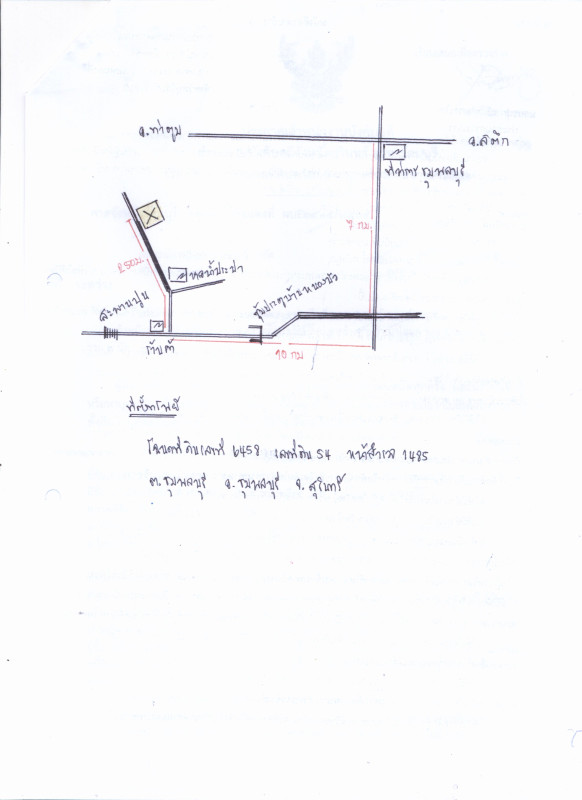 อ.ท่าตูม
อ.สตึก
ที่ว่าการ ชุมพลบุรี
7 กม.
250 ม.
หอถังประปา
สะพานปูน
ซุ้มประตูบ้านหนองบัว
ร้านค้า
10 กม
ที่ตั้งทรัพย์
โฉนดที่ดินเลขที่ 6458 เลขที่ดิน 54 หน้าสำรวจ 1485
ต.ชุมพลบุรี อ.ชุมพลบุรี จ.สุรินทร์